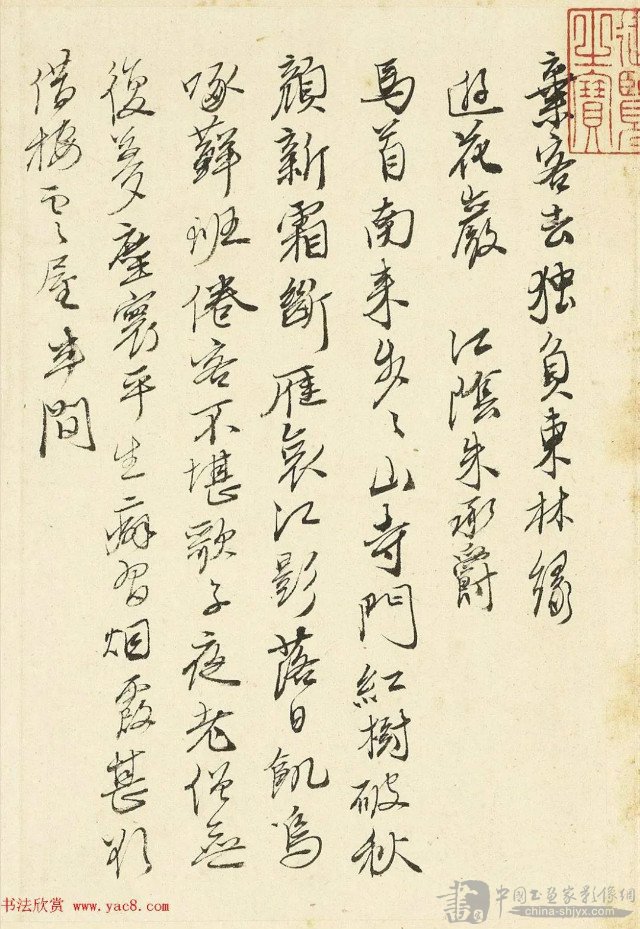 御覽
之寶
棄客去独負東林緣
遊花巖 江陰朱承爵
馬首南来山寺門紅樹破秋
顏新霜斷雁哀江影落日飢烏
啄蘚班倦客不堪歌子夜老僧無
復夢塵寰平生癖習烟霞甚
借棲雲屋半間
书法欣赏 www.yac8.com
書画
中國书画家影像網
china-shjyx.com